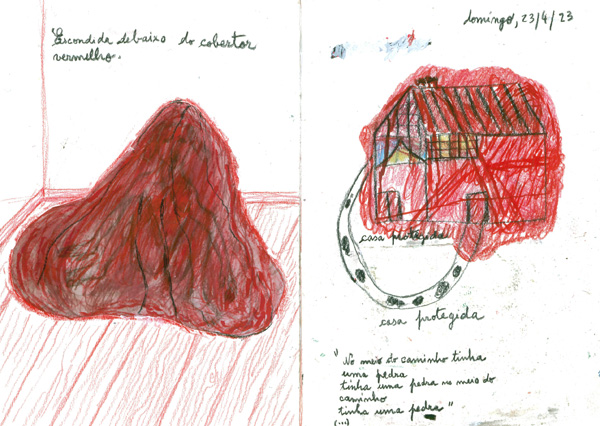 Escondida debaixo do cobertor
vermelho.
domingo, 23/4/23
casa protegida
casa protegida
"No meio do caminho tinha
uma pedra
tinha uma pedra no meio do
caminho
tinha uma pedra"
(...)